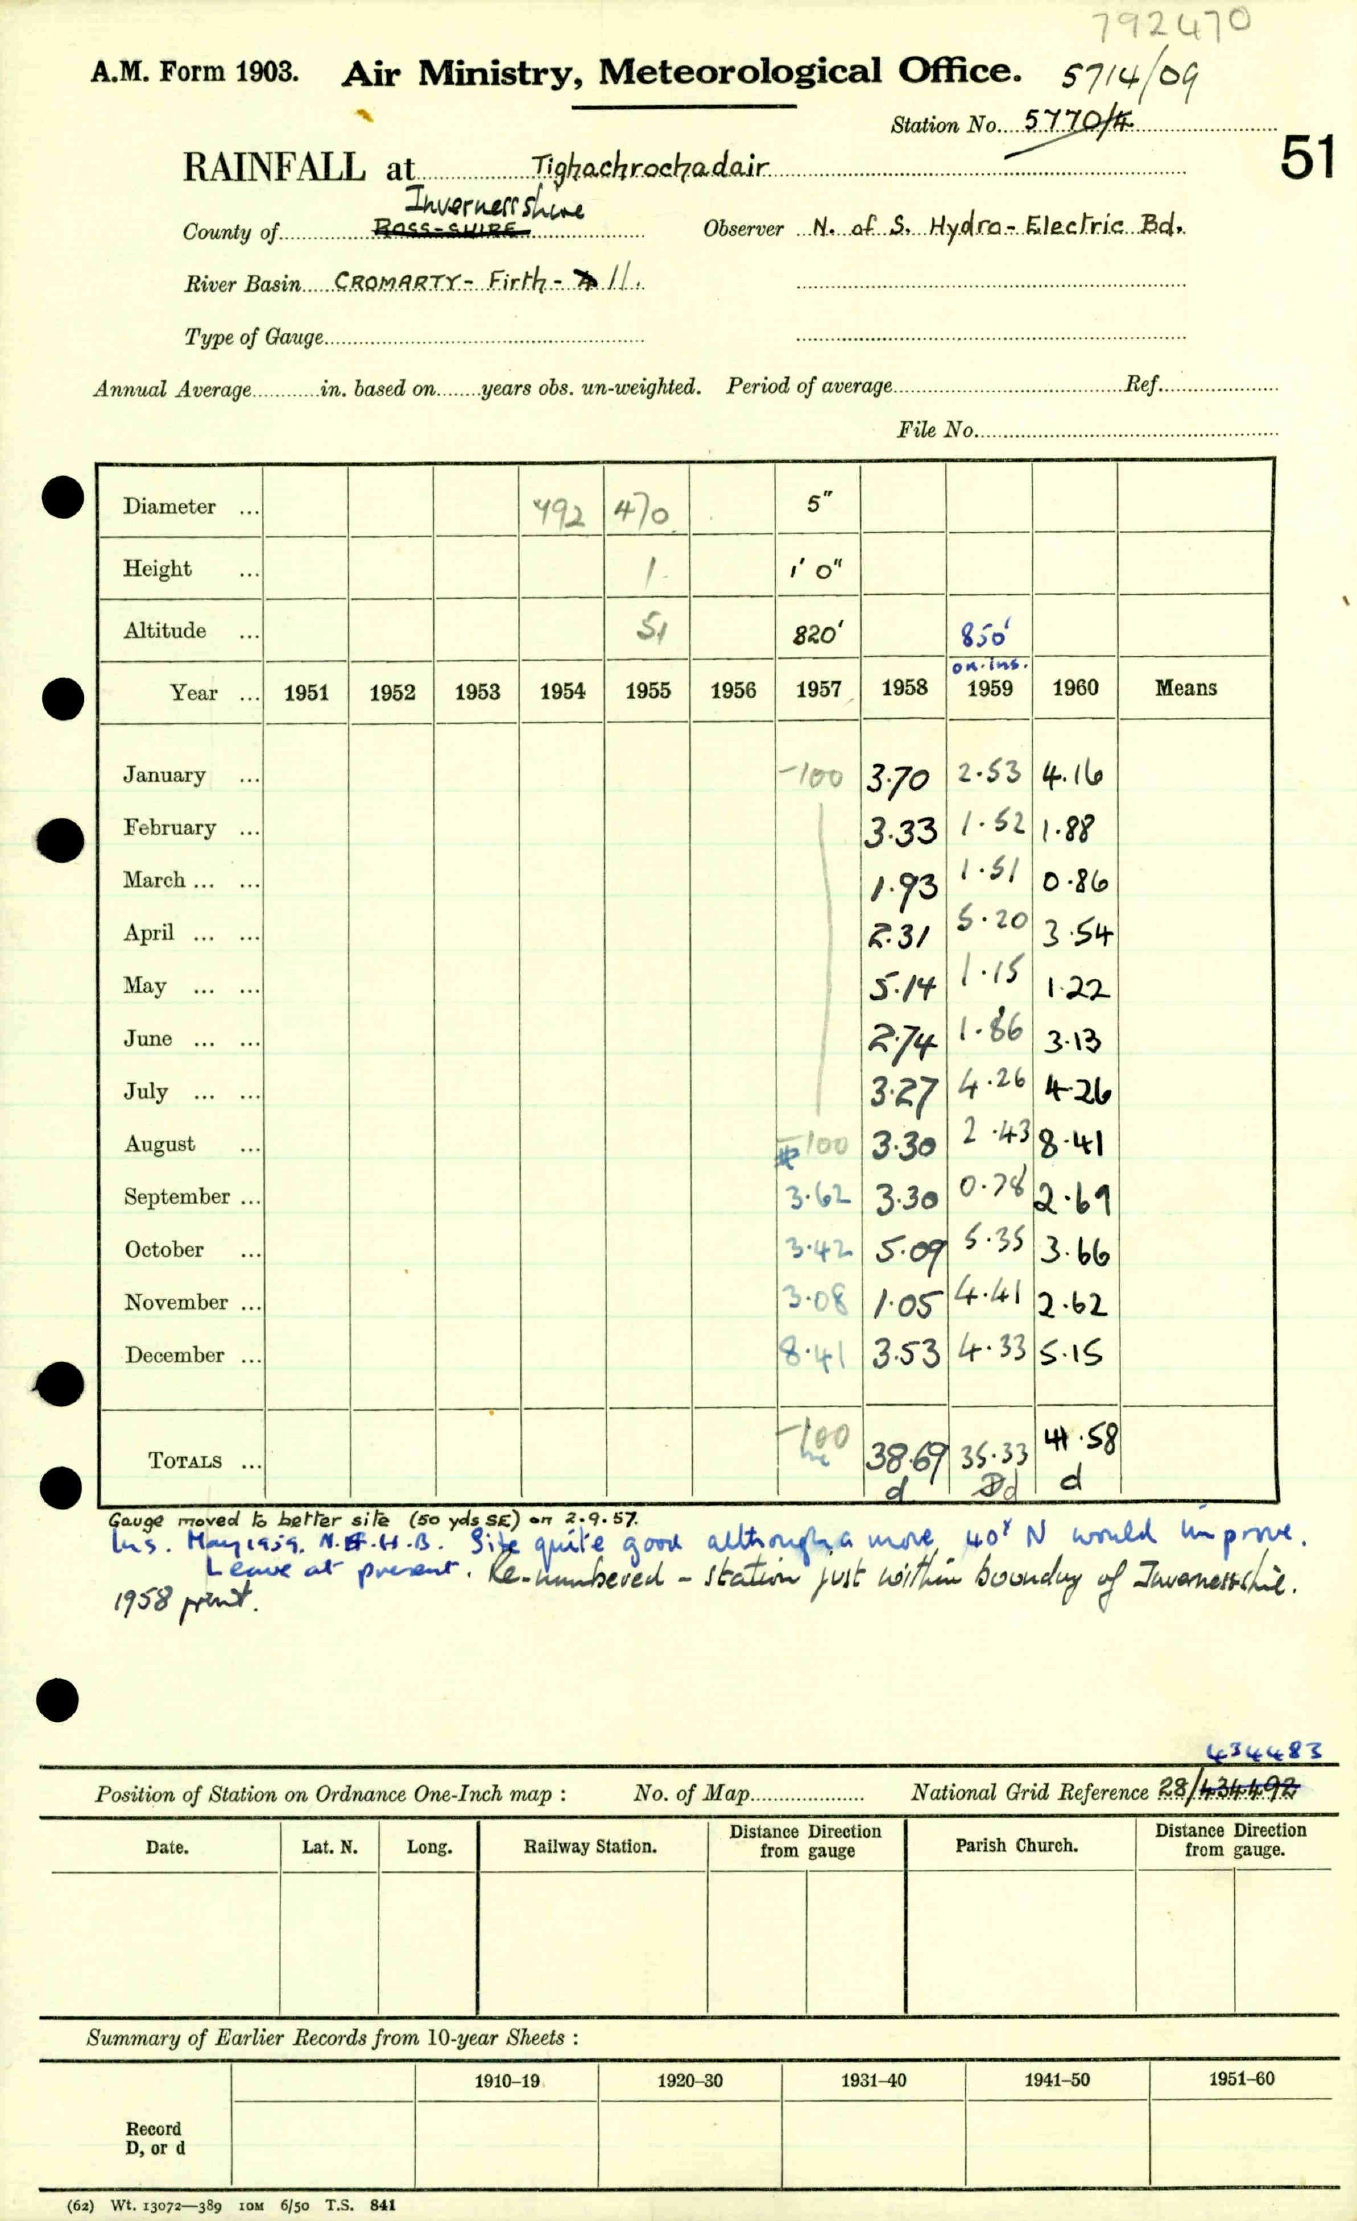 792470
A.M. Form 1903. Air Ministry, Meteorological Office. 5714/09
Station No. 5770/4
51
RAINFALL at Tighachrochadair
Invernessshire
County of ROSS-SHIRE Observer N. of S. Hydro-Electric Bd.
River Basin CROMARTY- Firth- 11.
Type of Gauge
Annual Average in. based on years obs. un-weighted. Period of average Ref.
File No.
Diameter ... 792 470 5"
Height ... 1 1' 0"
Altitude ... 51 820' 850'
on. ins.
Year ... 1951 1952 1953 1954 1955 1956 1957 1958 1959 1960 Means
January ... -100 3.70 2.53 4.16
February ... 3.33 1.52 1.88
March ... ... 1.93 1.51 0.86
April ... ... 2.31 5.20 3.54
May ... ... 5.14 1.15 1.22
June ... ... 2.74 1.86 3.13
July ... ... 3.27 4.26 4.26
August ... -100 3.30 2.43 8.41
September ... 3.62 3.30 0.78 2.69
October ... 3.42 5.09 5.35 3.66
November ... 3.08 1.05 4.41 2.62
December ... 8.41 3.53 4.33 5.15
TOTALS ... -100 38.69 35.33 41.58
d d d
Gauge moved to better site (50 yds SE) on 2.9.57.
Ins. May 1959. N.E.H.B. Site quite good although a move 40' N would improve.
Leave at present. Re-numbered - station just within boundary of Invernessshire.
1958 print.
434483
Position of Station on Ordnance One-Inch map : No. of Map National Grid Reference 28/434492
Date. Lat. N. Long. Railway Station. Distance from Direction gauge Parish Church. Distance from Direction gauge.
Summary of Earlier Records from 10-year Sheets :
1910–19 1920–30 1931–40 1941–50 1951–60
Record
D, or d
(62) Wt. 13072—389 10M 6/50 T.S. 841